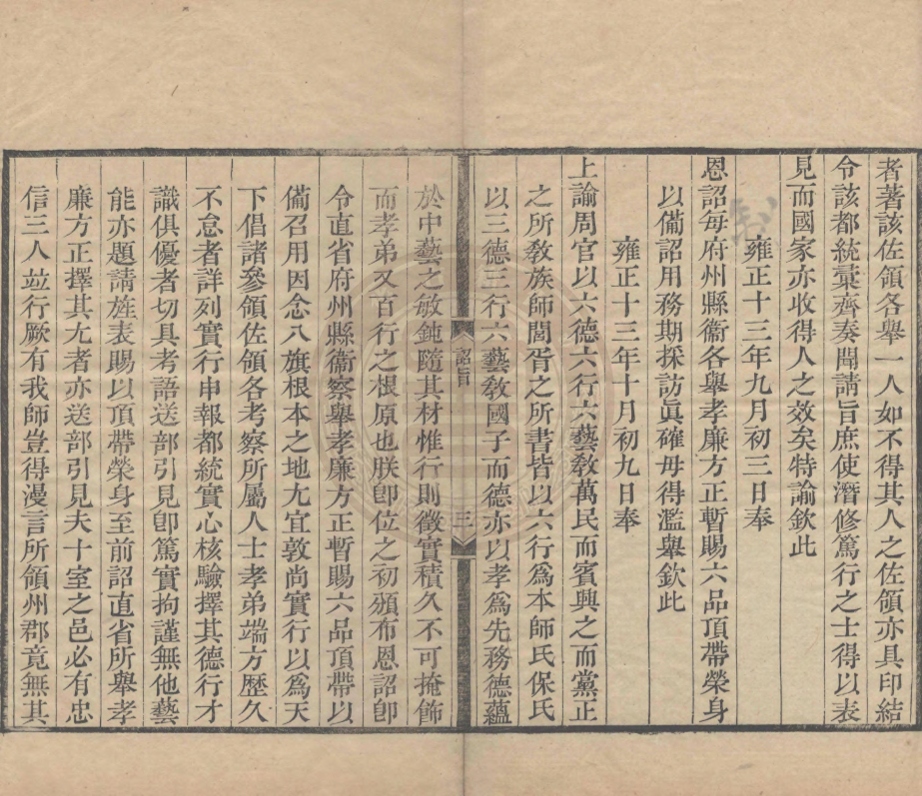 者著該佐領各舉一人如不得其人之佐領亦具印結
令該都統彙齊奏聞請旨庶使潛修篤行之士得以表
見而國家亦收得人之效矣特諭欽此
雍正十三年九月初三日奉
恩詔每府州縣衞各舉孝廉方正暫賜六品頂帶榮身
以備詔用務期採訪眞確毋得濫舉欽此
雍正十三年十月初九日奉
上諭周官以六德六行六藝敎萬民而賓興之而黨正
之所敎族師閭胥之所書皆以六行爲本師氏保氏
以三德三行六藝敎國子而德亦以孝爲先務德蘊
詔旨
三
於中藝之敏鈍隨其材惟行則徵實積久不可掩飾
而孝弟又百行之根原也朕卽位之初頒布恩詔卽
令直省府州縣衞察舉孝廉方正暫賜六品頂帶以
備召用因念八旗根本之地尤宜敦尚實行以爲天
下倡諸參領佐領各考察所屬人士孝弟端方歷久
不怠者詳列實行申報都統實心核驗擇其德行才
識俱優者切具考語送部引見卽篤實拘謹無他藝
能亦題請旌表賜以頂帶榮身至前詔直省所舉孝
廉方正擇其尤者亦送部引見夫十室之邑必有忠
信三人並行厥有我師豈得漫言所領州郡竟無其